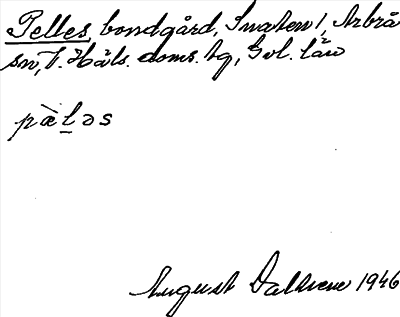 Pelles, bondgård, Snaten 1, Arbrå
sn, V. Häls. doms. tg, Gvl. län
pàḻəs
August Dalkvene 1946